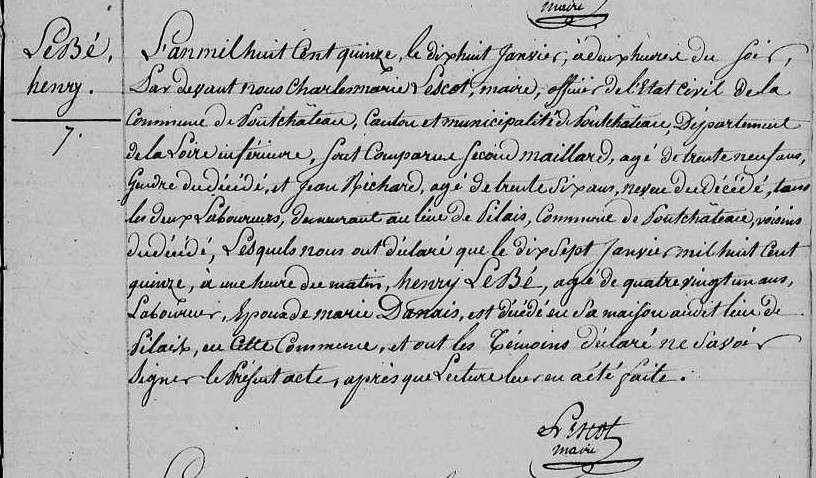 maire
LeBé,
henry.
7.
L'an mil huit Cent quinze, le dix huit Janvier, à deux heures du soir,
Par devant nous Charles marie Lescot, maire, officier de l'Etat Civil de la
Commune de Pontchâteau, Canton et municipalité de Pontchâteau, Département
de la Loire inférieure, sont Comparus second maillard, agé de trente neuf ans,
Gendre du décédé, et Jean Richard, agé de trente Six ans, neveu du décédé, tous
les deux Laboureurs, demeurant au lieu de Pilais, Commune de Pontchâteau, voisins
du décédé, Lesquels nous ont déclaré que le dix Sept Janvier mil huit Cent
quinze, à une heure du matin, henry LeBé, agé de quatre vingt un ans,
Laboureur, Epoux de marie Danais, est décédé en Sa maison au dit lieu de
Pilais, en Cette Commune, et ont les Témoins déclaré ne Savoir
Signer le Présent acte, après que Lecture leur en a été faite.
Lescot
maire